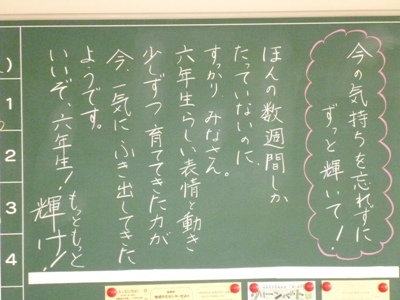 今の気持ちを忘れずに
ずっと輝いて!
ほんの数週間しか
たっていないのに、
すっかり、みなさん。
六年生らしい表情と動き
少しずつ育ててきた力が
今、一気にふき出してきた
ようです。
いいぞ、六年生!
もっともっと
輝け!
1
2
3
4